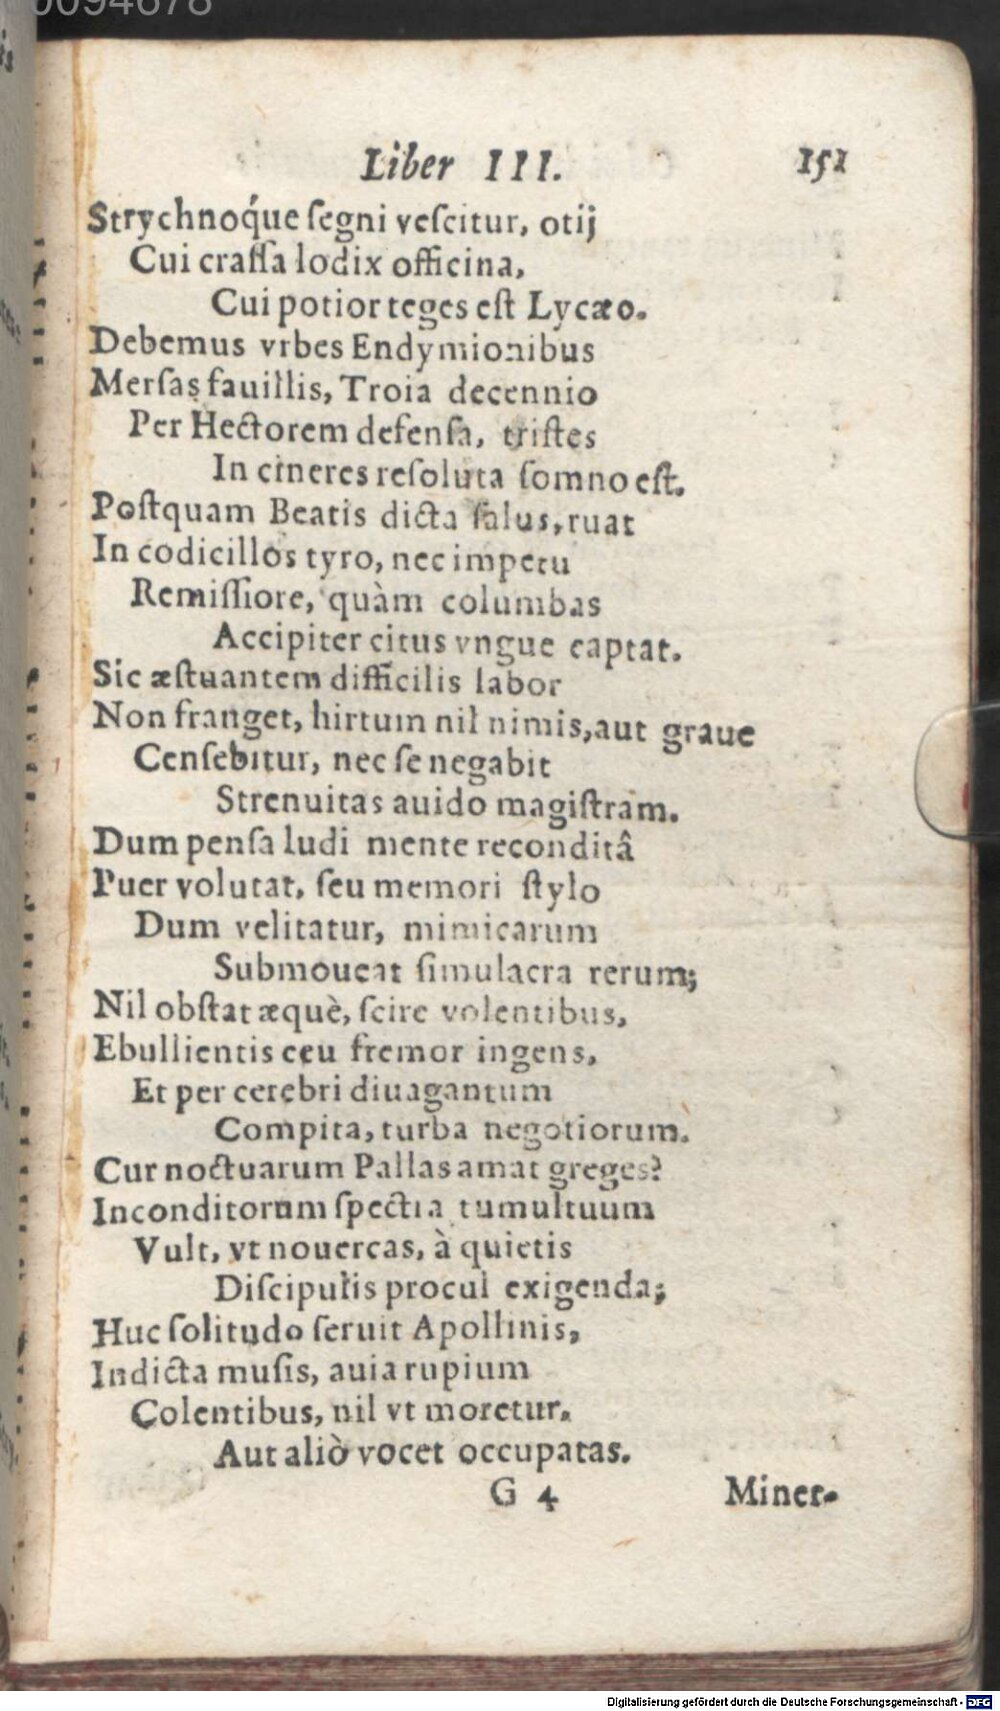 0094678
Liber III. 151
Strychnoq́ue ſegni veſcitur, otij
Cui craſſa lodix officina,
Cui potior teges eſt Lycæo.
Debemus vrbes Endymionibus
Merſas fauillis, Troia decennio
Per Hectorem defenſa, triſtes
In cineres reſoluta ſomno eſt.
Poſtquam Beatis dicta ſalus, ruat
In codicillos tyro, nec impetu
Remiſſiore, quàm columbas
Accipiter citus vngue captat.
Sic æſtuantem difficilis labor
Non franget, hirtum nil nimis, aut graue
Cenſebitur, nec ſe negabit
Strenuitas auido magiſtram.
Dum penſa ludi mente reconditâ
Puer volutat, ſeu memori ſtylo
Dum velitatur, mimicarum
Submoueat ſimulacra rerum;
Nil obſtat æquè, ſcire volentibus,
Ebullientis ceu fremor ingens,
Et per cerebri diuagantum
Compita, turba negotiorum.
Cur noctuarum Pallas amat greges?
Inconditorum ſpectra tumultuum
Vult, vt nouercas, à quietis
Diſcipulis procul exigenda;
Huc ſolitudo ſeruit Apollinis,
Indicta muſis, auia rupium
Colentibus, nil vt moretur,
Aut aliò vocet occupatas.
G 4 Miner-
Digitalisierung gefördert durch die Deutsche Forschungsgemeinschaft - DFG